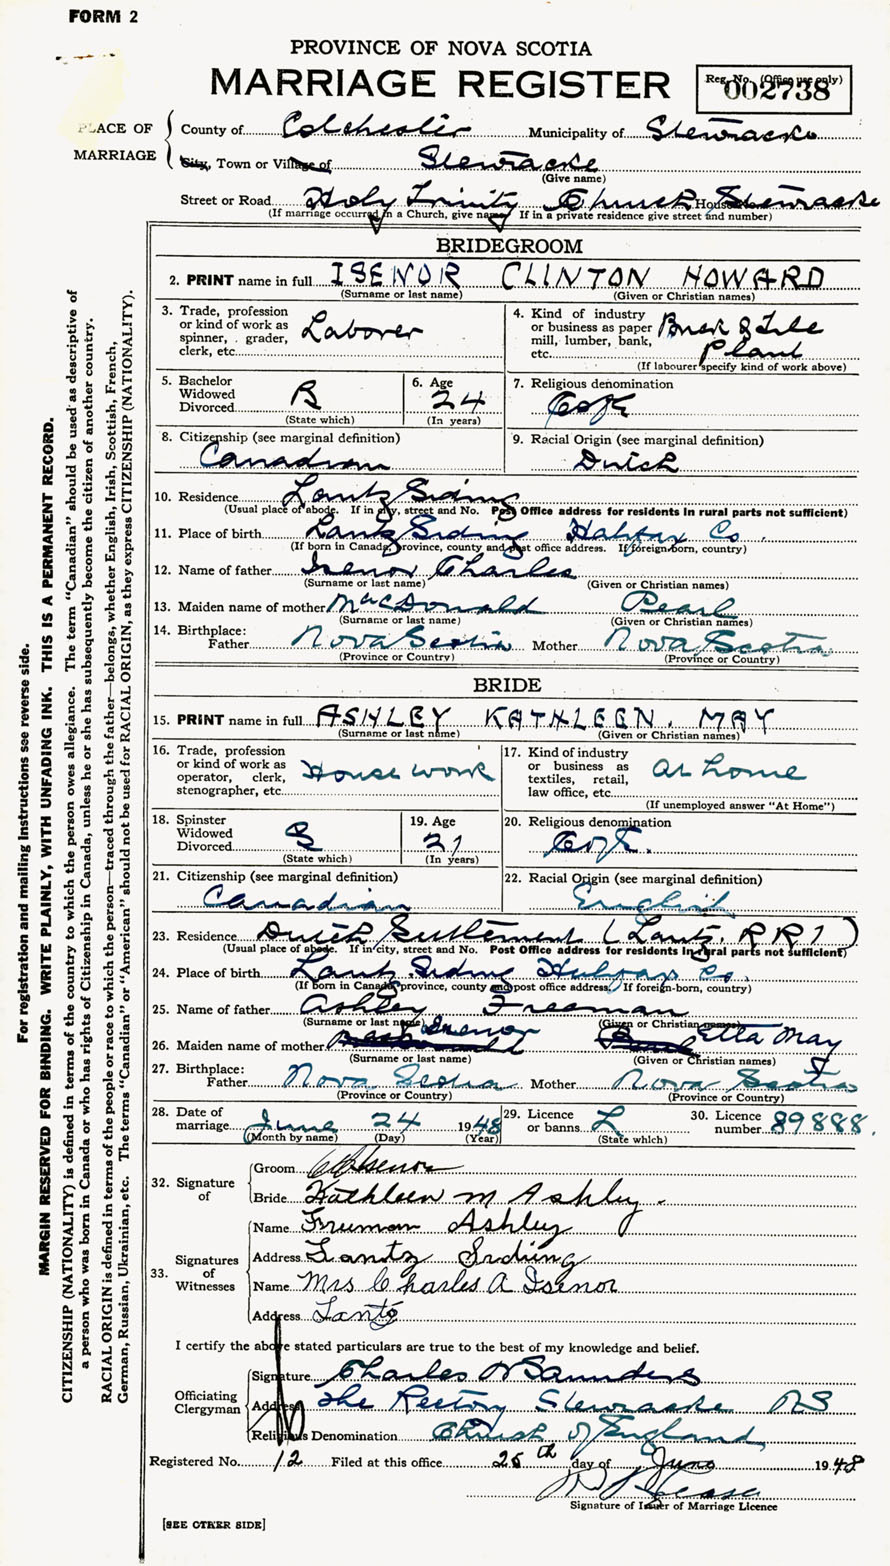 FORM 2
PROVINCE OF NOVA SCOTIA
MARRIAGE REGISTER
Reg. No. (Office use only)
002738
PLACE OF MARRIAGE
County of Colchester Municipality of Stewiacke
City, Town or Village of Stewiacke
(Give name)
Street or Road Holy Trinity Church House No. Stewiacke
(If marriage occurred in a Church, give name) If in a private residence give street and number)
BRIDEGROOM
2. PRINT name in full ISENOR CLINTON HOWARD
(Surname or last name) (Given or Christian names)
3. Trade, profession or kind of work as spinner, grader, clerk, etc. Laborer
4. Kind of industry or business as paper mill, lumber, bank, etc. Brick & Tile Plant
(If labourer specify kind of work above)
5. Bachelor Widowed Divorced B
(State which)
6. Age 24
(In years)
7. Religious denomination C of E
8. Citizenship (see marginal definition) Canadian
9. Racial Origin (see marginal definition) Dutch
10. Residence Lantz Siding
(Usual place of abode. If in city, street and No. Post Office address for residents in rural parts not sufficient)
11. Place of birth Lantz Siding Halifax Co.
(If born in Canada, province, county and post office address. If foreign-born, country)
12. Name of father Isenor Charles
(Surname or last name) (Given or Christian names)
13. Maiden name of mother MacDonald Pearl
(Surname or last name) (Given or Christian names)
14. Birthplace: Father Nova Scotia Mother Nova Scotia
(Province or Country) (Province or Country)
BRIDE
15. PRINT name in full ASHLEY KATHLEEN. MAY
(Surname or last name) (Given or Christian names)
16. Trade, profession or kind of work as operator, clerk, stenographer, etc. Housework
17. Kind of industry or business as textiles, retail, law office, etc. at home
(If unemployed answer "At Home")
18. Spinster Widowed Divorced S
(State which)
19. Age 21
(In years)
20. Religious denomination C of E.
21. Citizenship (see marginal definition) Canadian
22. Racial Origin (see marginal definition) English
23. Residence Dutch Settlement (Lantz, RR1)
(Usual place of abode. If in city, street and No. Post Office address for residents in rural parts not sufficient)
24. Place of birth Lantz Siding Halifax Co.
(If born in Canada, province, county and post office address. If foreign-born, country)
25. Name of father Ashley Freeman
(Surname or last name) (Given or Christian names)
26. Maiden name of mother Isenor Etta May
(Surname or last name) (Given or Christian names)
27. Birthplace: Father Nova Scotia Mother Nova Scotia
(Province or Country) (Province or Country)
28. Date of marriage June 24 1948
(Month by name) (Day) (Year)
29. Licence or banns L
(State which)
30. Licence number 89888.
32. Signature of
Groom C H Isenor
Bride Kathleen M Ashley.
33. Signatures of Witnesses
Name Freeman Ashley
Address Lantz Siding
Name Mrs Charles A Isenor
Address Lantz
I certify the above stated particulars are true to the best of my knowledge and belief.
Officiating Clergyman
Signature Charles W Saunders
Address The Rectory Stewiacke NS
Religious Denomination Church of England
Registered No. 12 Filed at this office 25th day of June 1948
Signature of Issuer of Marriage Licence
[SEE OTHER SIDE]
For registration and mailing instructions see reverse side.
MARGIN RESERVED FOR BINDING. WRITE PLAINLY, WITH UNFADING INK. THIS IS A PERMANENT RECORD.
CITIZENSHIP (NATIONALITY) is defined in terms of the country to which the person owes allegiance. The term "Canadian" should be used as descriptive of
a person who was born in Canada or who has rights of Citizenship in Canada, unless he or she has subsequently become the citizen of another country.
RACIAL ORIGIN is defined in terms of the people or race to which the person—traced through the father—belongs, whether English, Irish, Scottish, French,
German, Russian, Ukrainian, etc. The terms "Canadian" or "American" should not be used for RACIAL ORIGIN, as they express CITIZENSHIP (NATIONALITY).